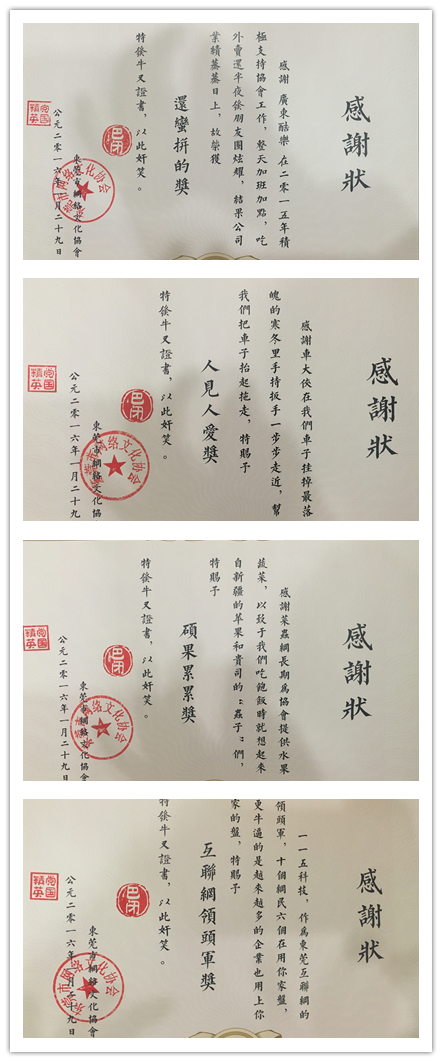 感謝狀
感謝 廣東酷樂 在二零一五年積
極支持協會工作，整天加班加點，吃
外賣還半夜發朋友圈炫耀，結果公司
業績蒸蒸日上，故榮獲
還蠻拼的獎
特發牛叉證書，以此奸笑。
東莞市網絡文化協會
公元二零一六年一月二十九日
感謝狀
感謝車大俠在我們車子挂掉最落
魄的寒冬里手持扳手一步步走近，幫
我們把車子抬起拖走，特賜予
人見人愛獎
特發牛叉證書，以此奸笑。
東莞市網絡文化協
公元二零一六年一月二十九
感謝狀
感謝菜蟲網長期為協會提供水果
蔬菜，以致于我們吃飽飯時就想起來
自新疆的苹果和貴司的“蟲子”們，
特賜予
碩果累累獎
特發牛叉證書，以此奸笑。
東莞市網絡文化協會
公元二零一六年一月二十九日
感謝狀
一一五科技，作為東莞互聯網的
領頭軍，十個網民六個在用你家盤，
更牛逼的是越來越多的企業也用上你
家的盤，特賜予
互聯網領頭軍獎
特發牛叉證書，以此奸笑。
東莞市網絡文化協會
公元二零一六年一月二十九日